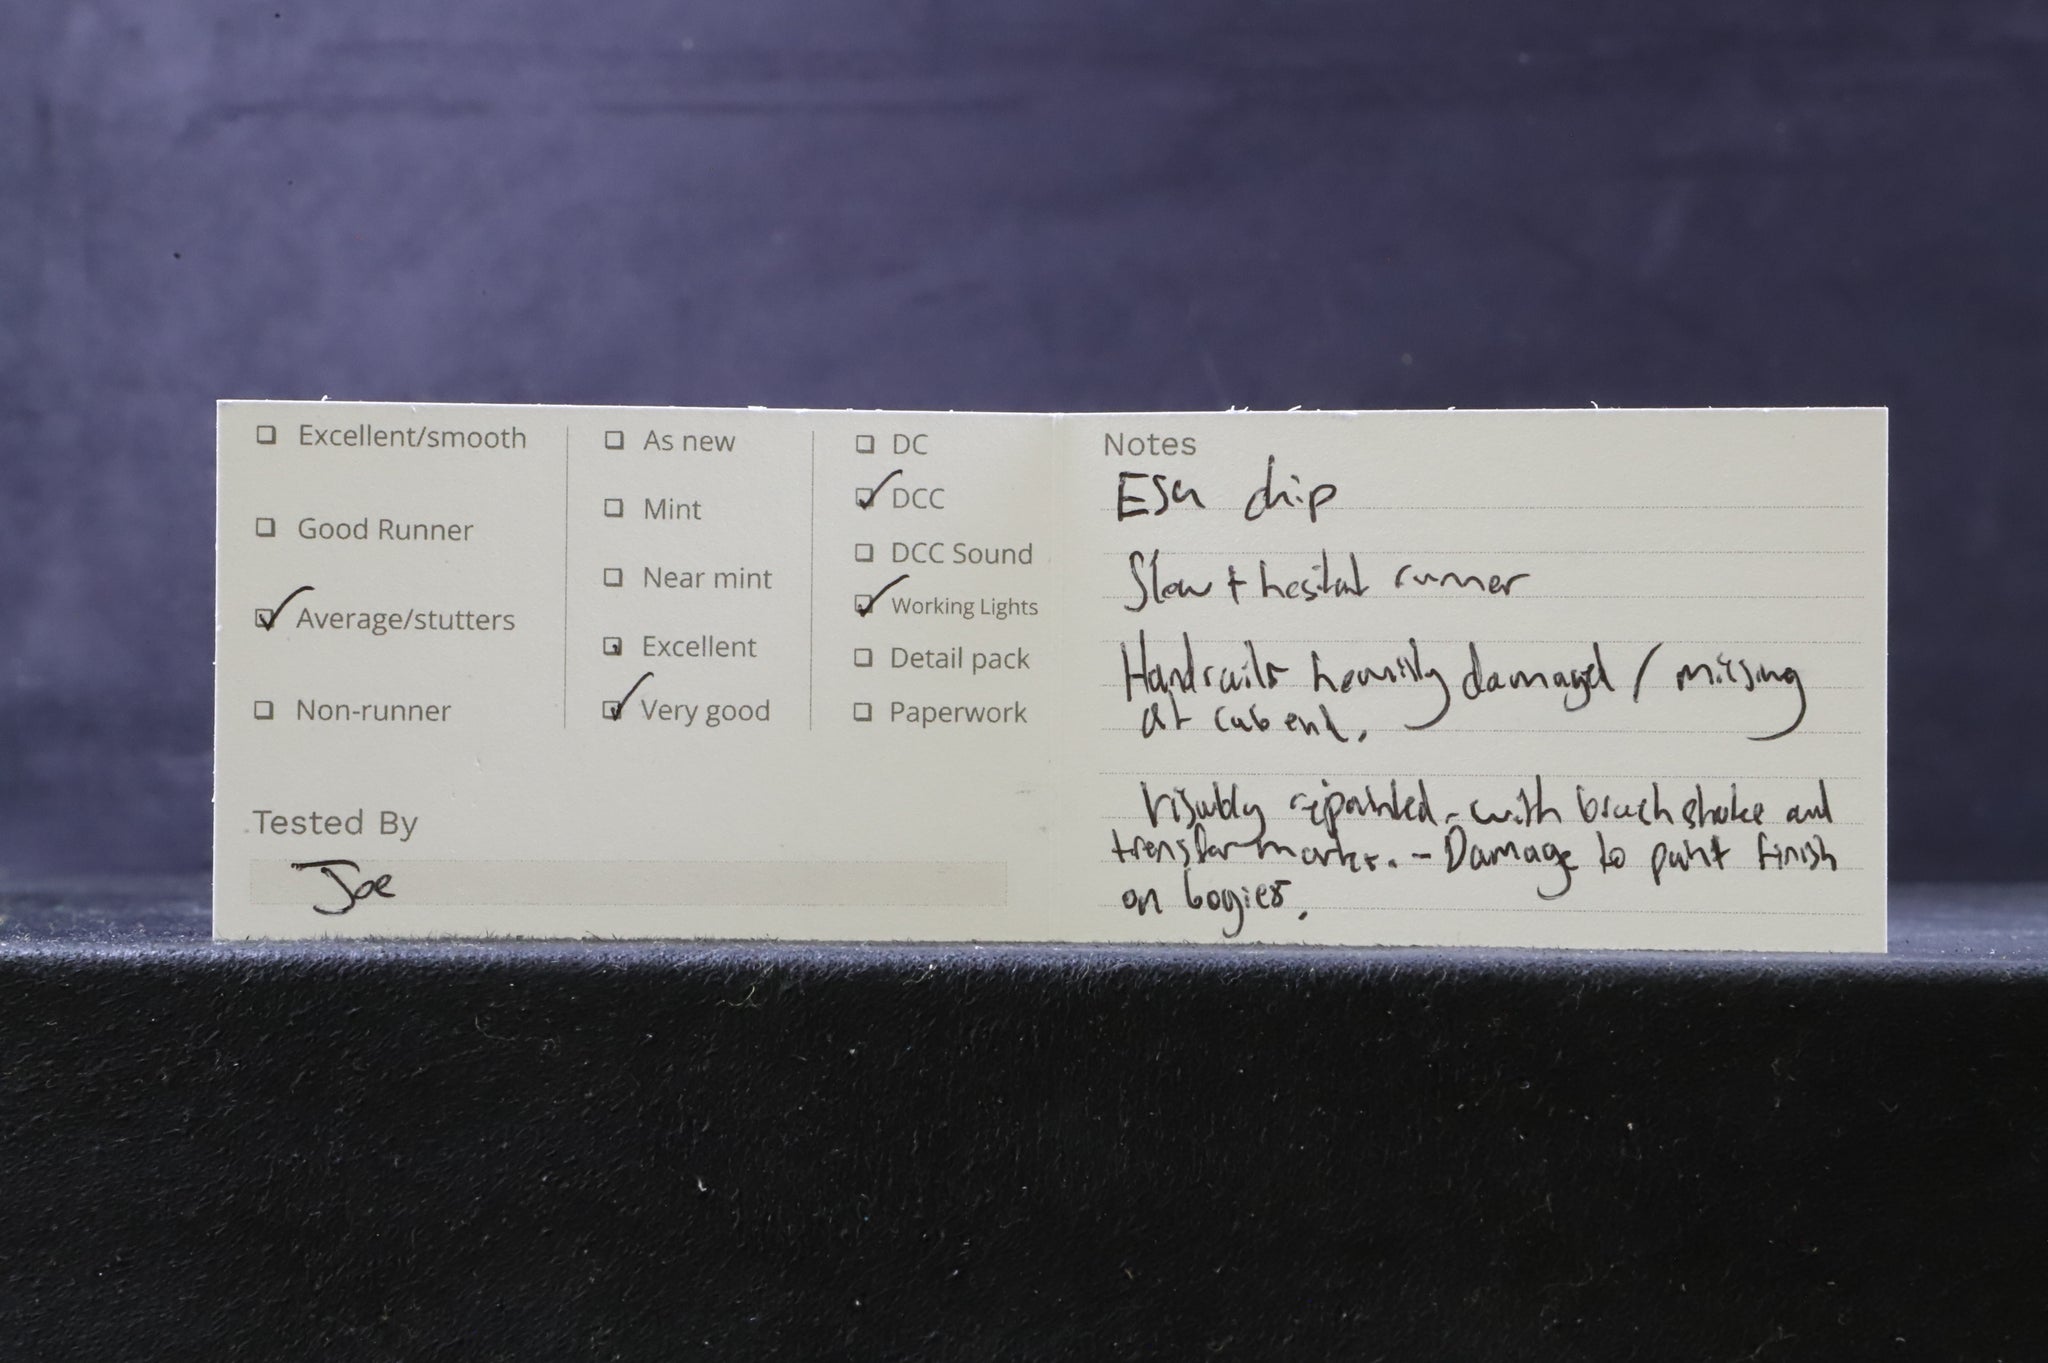 Excellent/smooth
Good Runner
Average/stutters
Non-runner
As new
Mint
Near mint
Excellent
Very good
DC
DCC
DCC Sound
Working Lights
Detail pack
Paperwork
Tested By
Joe
Notes
ESU chip
Slow + hesitat runner
Handrails heavily damaged / missing
at cab end.
Visably repainted - with brush stroke and
transfer marks. - Damage to paint finish
on bogies.